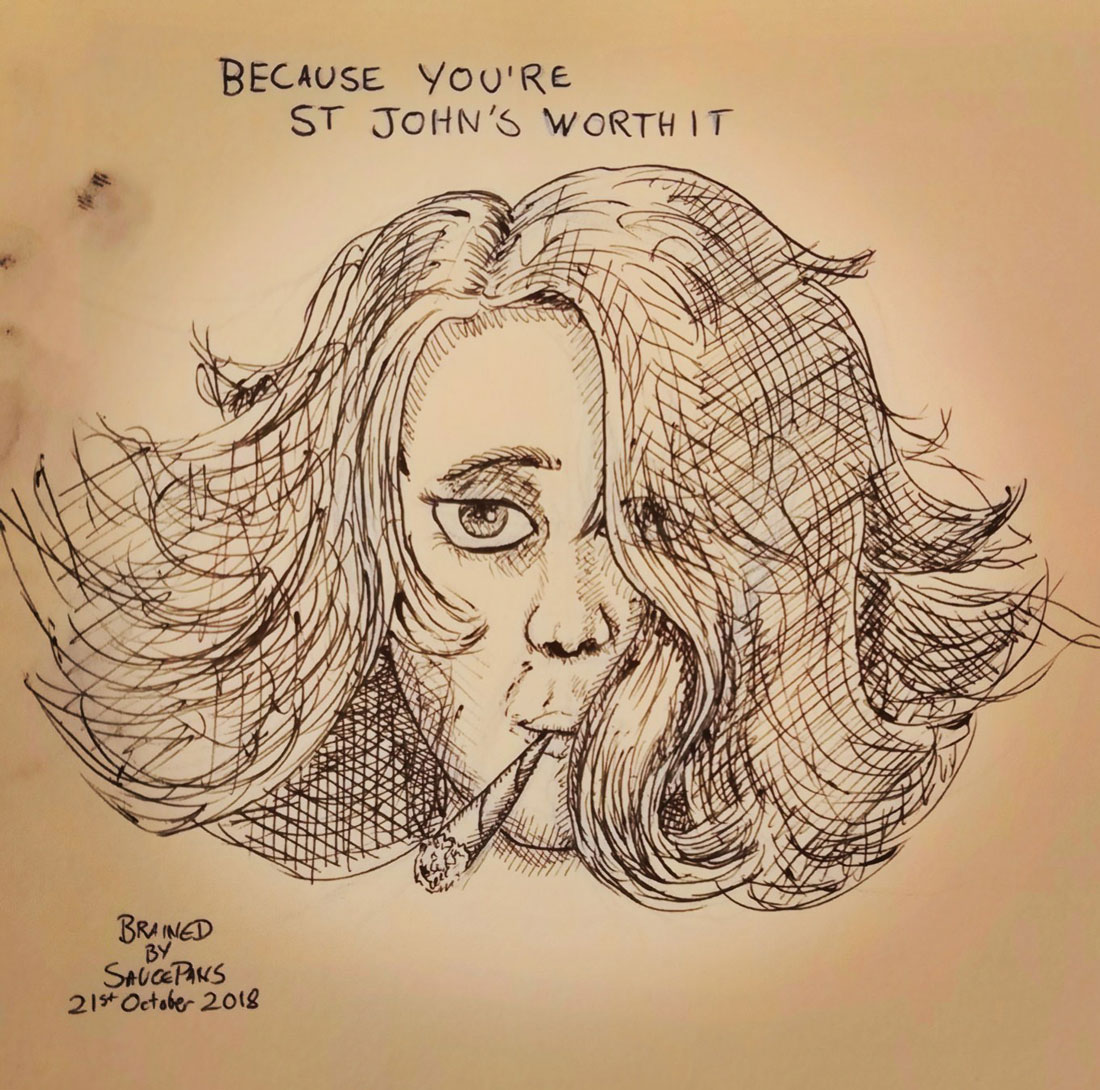 BECAUSE YOU'RE
ST JOHN'S WORTH IT
BRAINED
BY
SAUCEPANS
21st October 2018